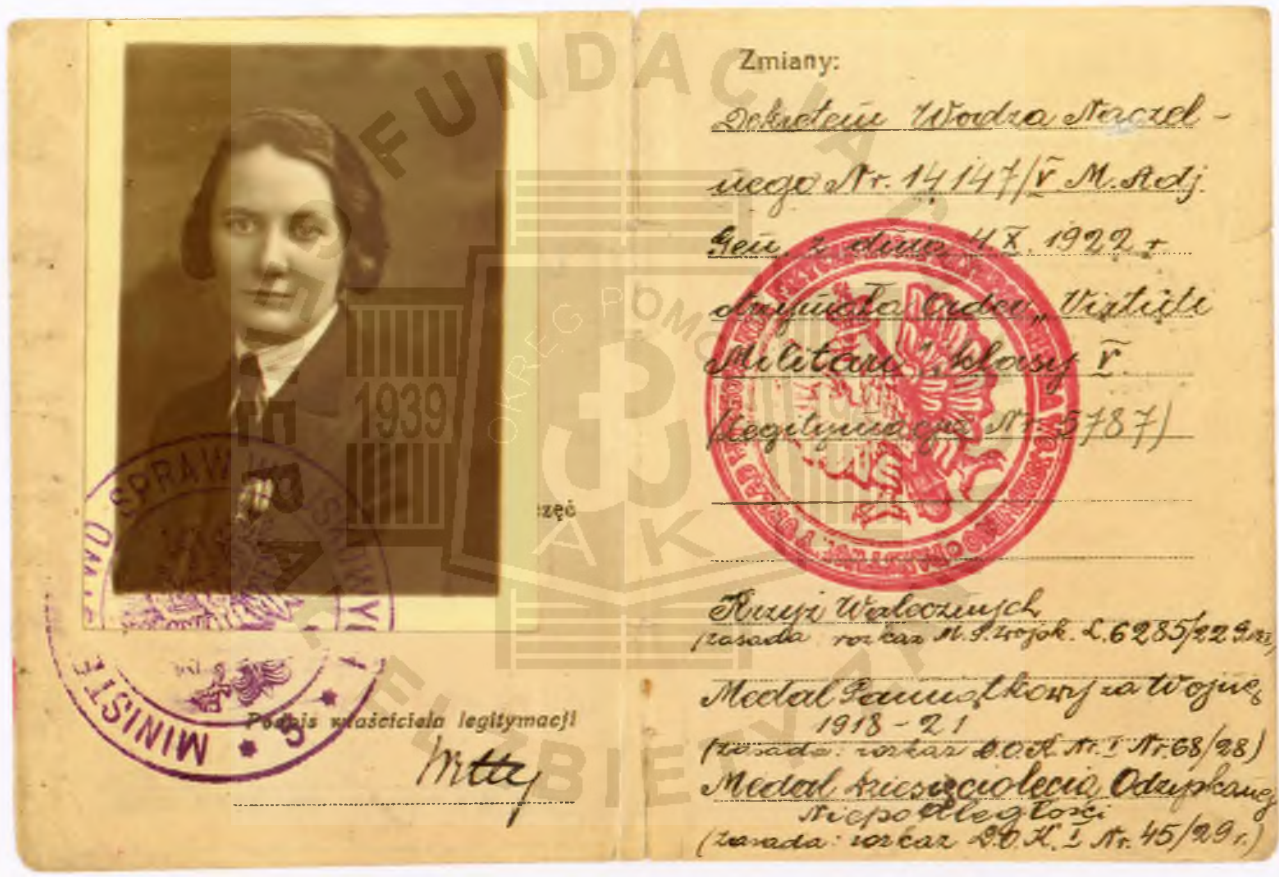 FUNDACJA GENERAŁ ELŻBIETY ZAWACKIEJ
OKRĘG POMORZE
1939
AK
zęć
MINISTERSTWO SPRAW WOJSKOWYCH
* 5 *
Podpis właściciela legitymacji
Zmiany:
Dekretem Wodza Naczel-
nego Nr. 14147/V M. Adj
Gen. z dnia 4 X. 1922 r
otrzymała Order „Virtuti
Militari", klasy V.
(Legitymacja Nr 5787)
Krzyż Walecznych
(zasada: rozkaz M. S. Wojsk. L. 6285/22
Medal Pamiątkowy za Wojnę
1918-21
(zasada: rozkaz D.O.K. Nr. I Nr 68/28)
Medal Dziesięciolecia Odzyskanej
Niepodległości
(zasada: rozkaz D.O.K. I Nr. 45/29 r.)